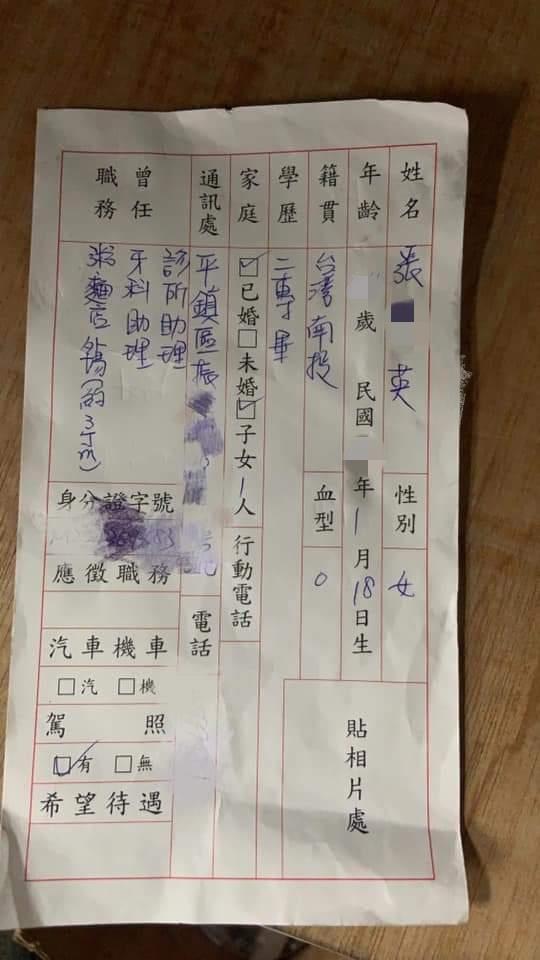 姓名 張 英 性別 女
年齡 歲 民國 年 1 月 18 日生
籍貫 台灣南投 血型 O
貼相片處
學歷 二專畢
家庭 ☑已婚□未婚☑子女 1 人 行動電話
通訊處 平鎮區振 電話
曾任職務
診所助理
牙科助理
粥麵店
身分證字號
應徵職務
汽車機車
□汽 □機
駕照
☑有 □無
希望待遇